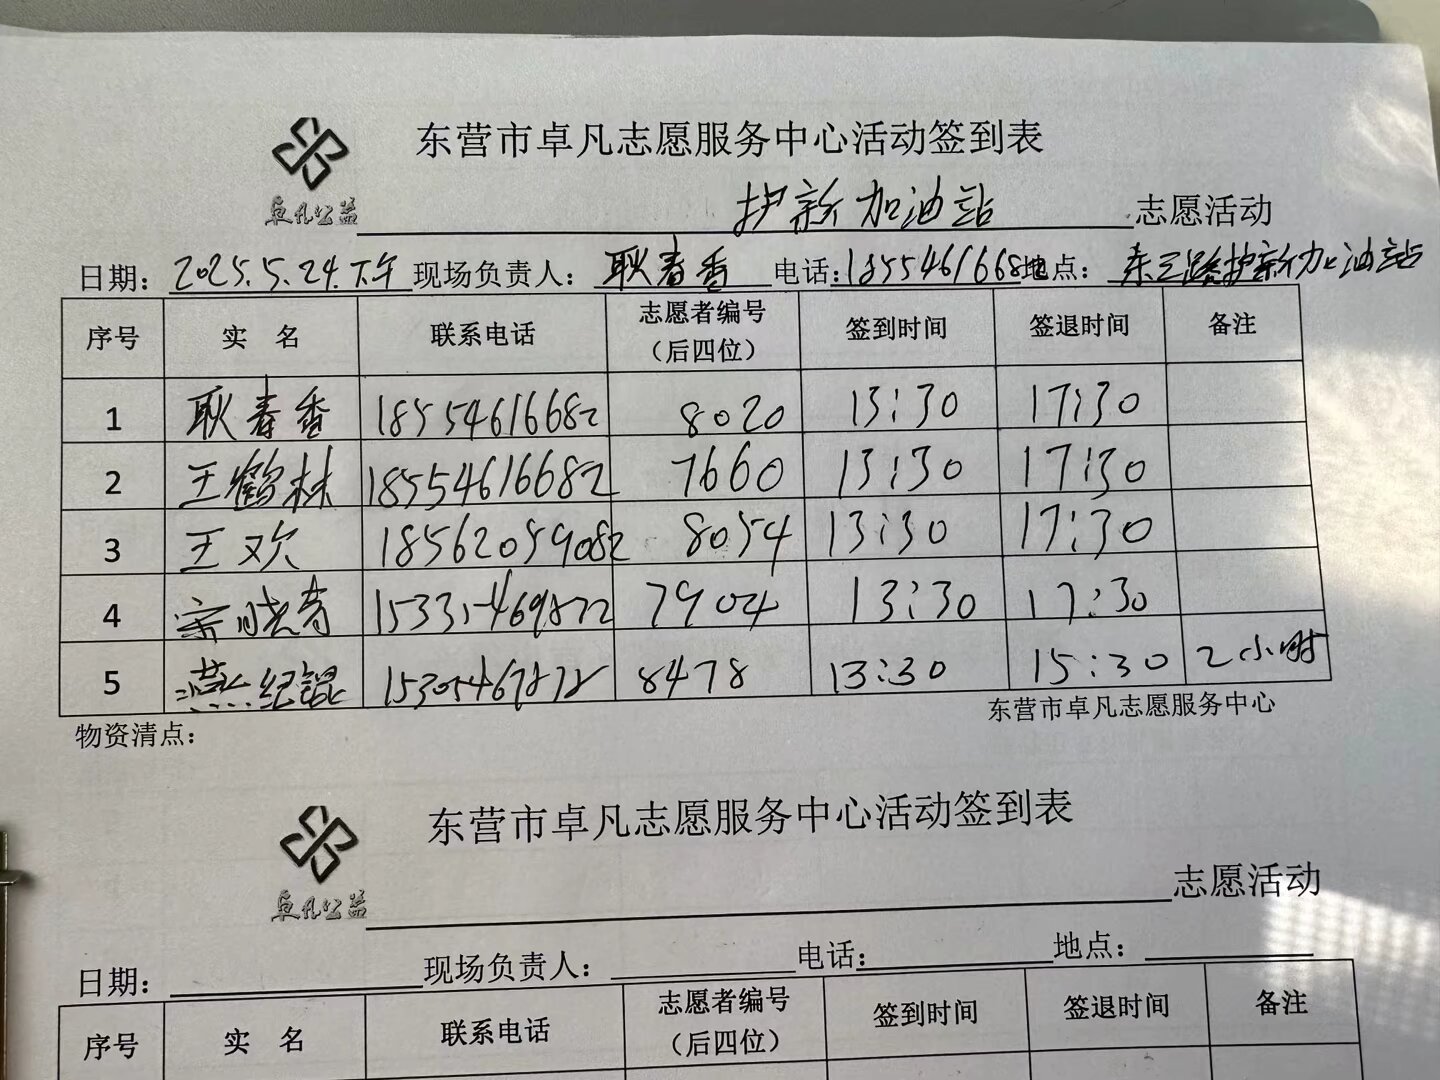 东营市卓凡志愿服务中心活动签到表
卓凡公益 护新加油站 志愿活动
日期：2025.5.24.下午 现场负责人：耿春香 电话：18554616682 地点：东三路护新加油站
序号 实 名 联系电话 志愿者编号（后四位） 签到时间 签退时间 备注
1 耿春香 18554616682 8020 13:30 17:30
2 王鹤林 18554616682 7660 13:30 17:30
3 王欢 18562059082 8054 13:30 17:30
4 宗晓奇 7904 13:30 17:30
5 燕纪锟 8478 13:30 15:30 2小时
物资清点： 东营市卓凡志愿服务中心
东营市卓凡志愿服务中心活动签到表
卓凡公益 志愿活动
日期： 现场负责人： 电话： 地点：
序号 实 名 联系电话 志愿者编号（后四位） 签到时间 签退时间 备注